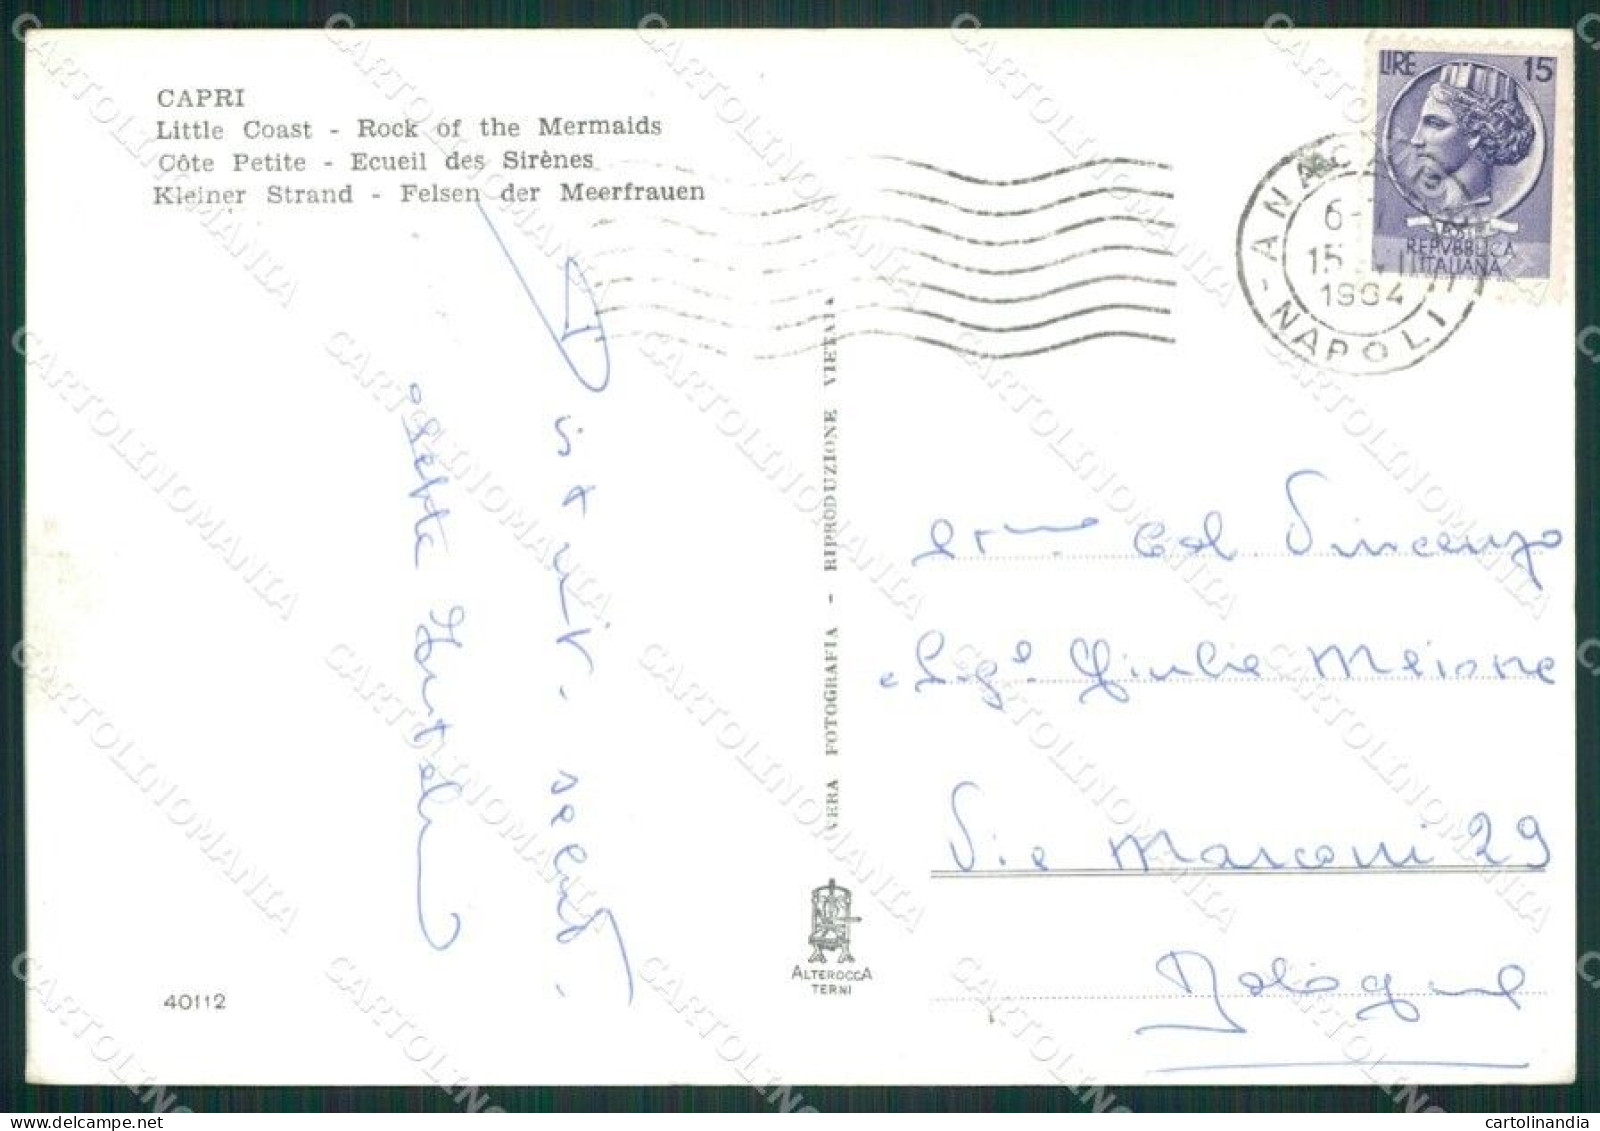 CAPRI
Little Coast - Rock of the Mermaids
Côte Petite - Ecueil des Sirènes
Kleiner Strand - Felsen der Meerfrauen
LIRE 15
REPVBBLICA
ITALIANA
ANACAPRI
6-
15
1964
- NAPOLI
Distinti saluti
VERA FOTOGRAFIA - RIPRODUZIONE VIETATA
Col. Vincenzo
e Sig.a Giulia Meione
Via Marconi 29
Bologna
ALTEROCCA
TERNI
40112
CARTOLINOMANIA
cartolinandia